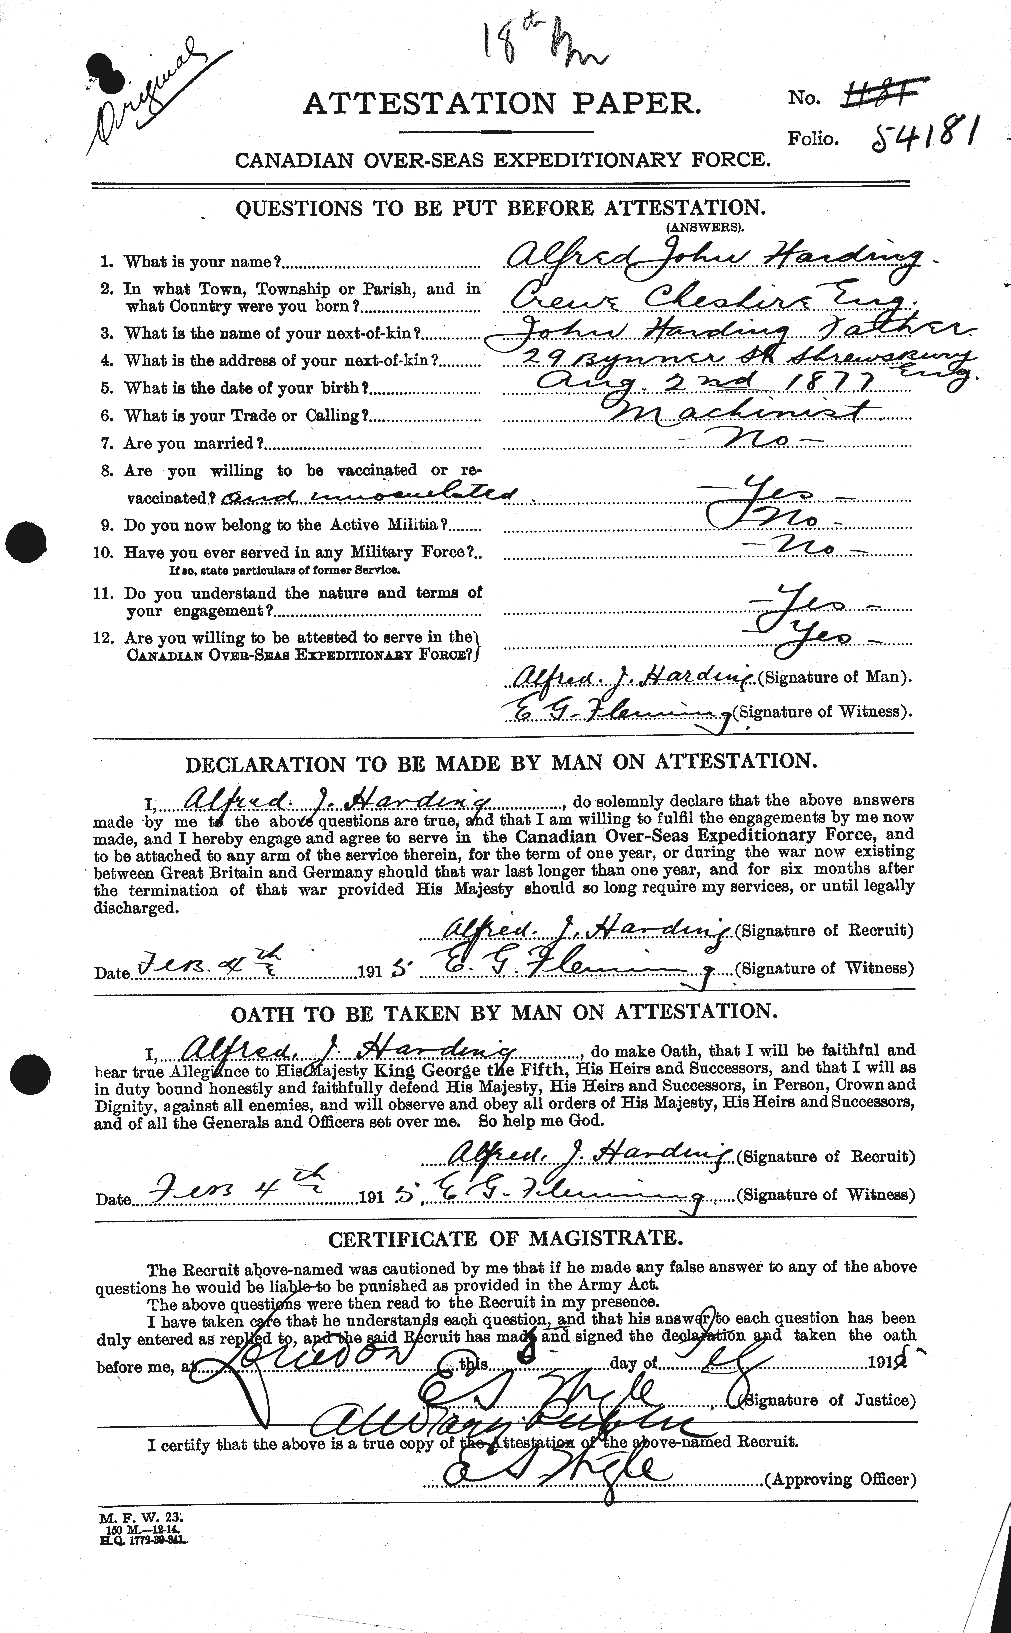 18th Bn
Original
ATTESTATION PAPER.
No.
Folio. 54181
CANADIAN OVER-SEAS EXPEDITIONARY FORCE.
QUESTIONS TO BE PUT BEFORE ATTESTATION.
(ANSWERS).
1. What is your name? Alfred John Harding.
2. In what Town, Township or Parish, and in
what Country were you born? Crewe Cheshire Eng.
3. What is the name of your next-of-kin? John Harding Father
4. What is the address of your next-of-kin? 29 Bynner St Shrewsbury Eng.
5. What is the date of your birth? Aug. 2nd 1877
6. What is your Trade or Calling? Machinist
7. Are you married? - No -
8. Are you willing to be vaccinated or re-
vaccinated? and innoculated. - Yes -
9. Do you now belong to the Active Militia? No -
10. Have you ever served in any Military Force?.. - No -
If so, state particulars of former Service.
11. Do you understand the nature and terms of
your engagement? - Yes -
12. Are you willing to be attested to serve in the
CANADIAN OVER-SEAS EXPEDITIONARY FORCE? - Yes -
Alfred. J. Harding (Signature of Man).
E G. Fleming (Signature of Witness).
DECLARATION TO BE MADE BY MAN ON ATTESTATION.
I, Alfred. J. Harding, do solemnly declare that the above answers
made by me to the above questions are true, and that I am willing to fulfil the engagements by me now
made, and I hereby engage and agree to serve in the Canadian Over-Seas Expeditionary Force, and
to be attached to any arm of the service therein, for the term of one year, or during the war now existing
between Great Britain and Germany should that war last longer than one year, and for six months after
the termination of that war provided His Majesty should so long require my services, or until legally
discharged.
Alfred. J. Harding (Signature of Recruit)
Date Feb. 4th 1915 E. G. Fleming (Signature of Witness)
OATH TO BE TAKEN BY MAN ON ATTESTATION.
I, Alfred. J Harding, do make Oath, that I will be faithful and
bear true Allegiance to His Majesty King George the Fifth, His Heirs and Successors, and that I will as
in duty bound honestly and faithfully defend His Majesty, His Heirs and Successors, in Person, Crown and
Dignity, against all enemies, and will observe and obey all orders of His Majesty, His Heirs and Successors,
and of all the Generals and Officers set over me. So help me God.
Alfred. J. Harding (Signature of Recruit)
Date Feb 4th 1915. E G. Fleming (Signature of Witness)
CERTIFICATE OF MAGISTRATE.
The Recruit above-named was cautioned by me that if he made any false answer to any of the above
questions he would be liable to be punished as provided in the Army Act.
The above questions were then read to the Recruit in my presence.
I have taken care that he understands each question, and that his answer to each question has been
duly entered as replied to, and the said Recruit has made and signed the declaration and taken the oath
before me, at London this day of Feby 1915
E S Wigle (Signature of Justice)
A Notary Public
I certify that the above is a true copy of the Attestation of the above-named Recruit.
E S Wigle (Approving Officer)
M. F. W. 23.
150 M.—12-14.
H.Q. 1772-39-841.